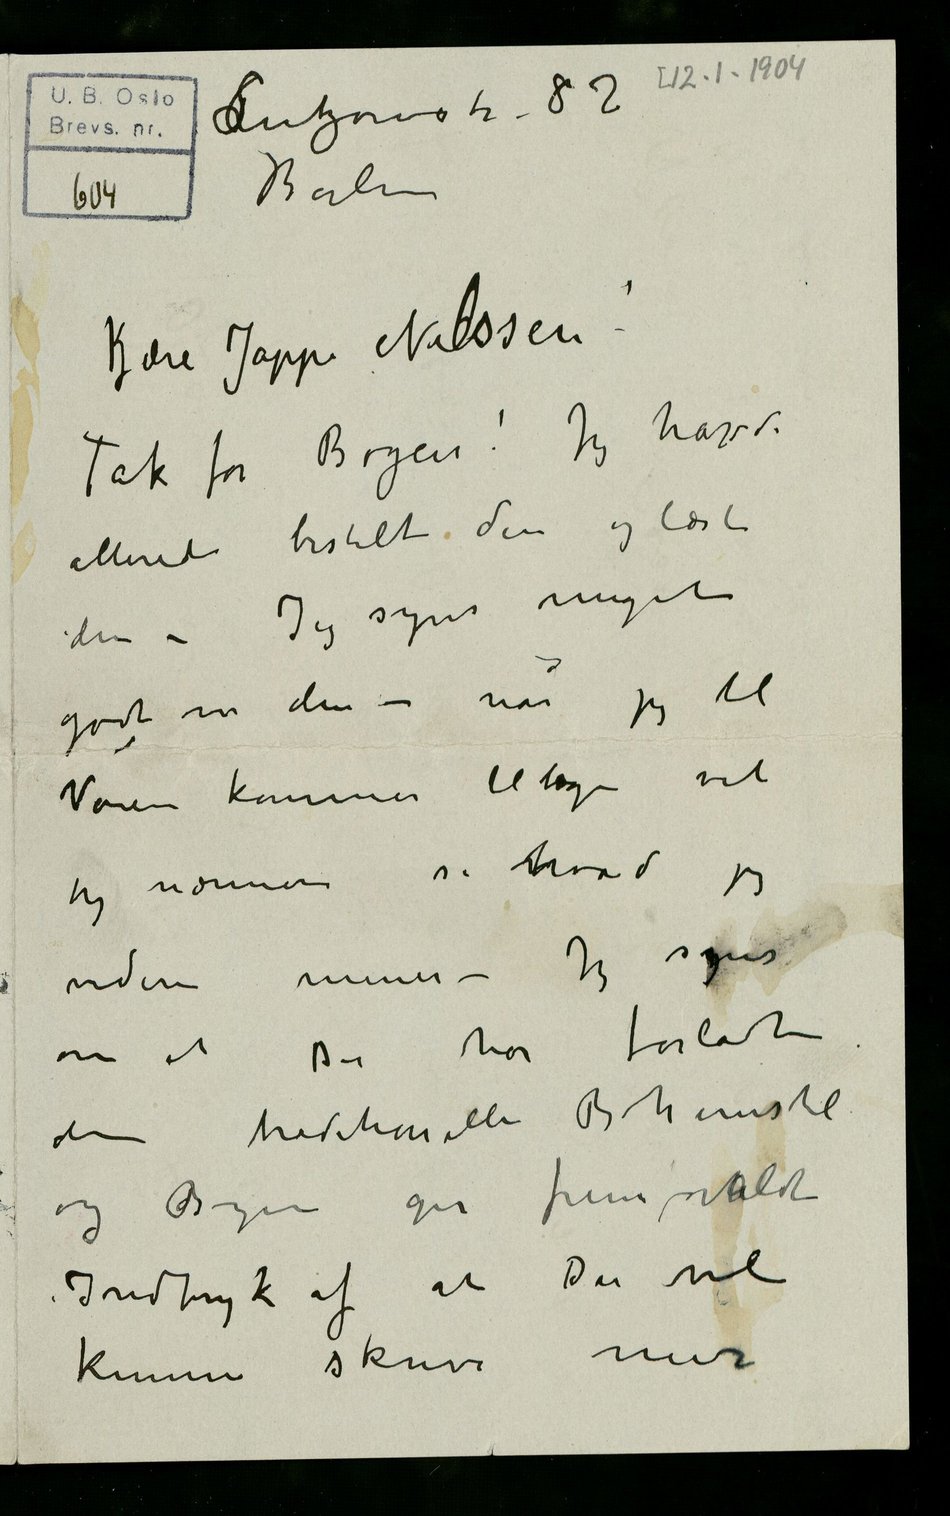 [12.1.1904
U. B. Oslo
Brevs. nr.
604
Lutzowstr. 82
Berlin
Kjære Jappe Nilssen!
Tak for Bogen! Jeg havde
allerede bestilt den og læst
den – Jeg synes meget
godt om den – når jeg til
Våren kommer tilbage vil
jeg nærmere si hvad jeg
videre mener – Jeg synes
om at De har forladt
den traditionelle Bohemstil
og Bogen gir
Indtryk af at De vil
kunne skrive mer